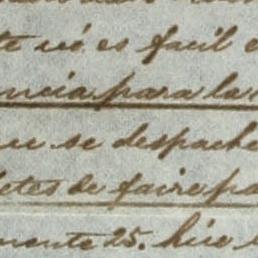 te nó es facil e
ncia para la
ue se despache
letes de faire pa
mente 25. hice